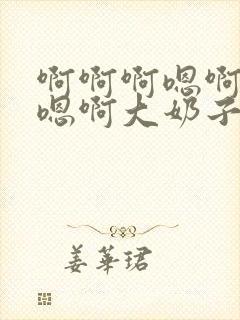 啊啊啊嗯啊
嗯啊大奶子
姜华珺